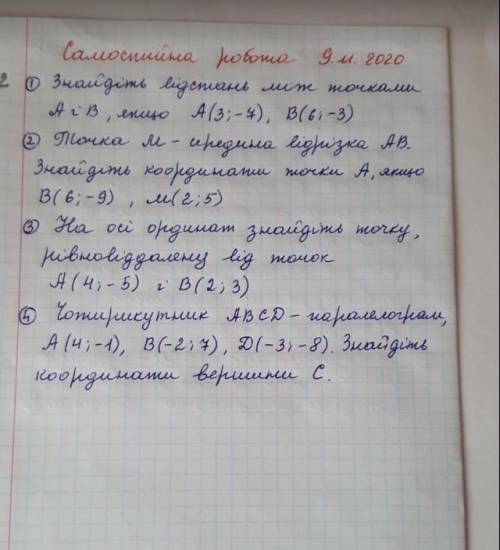 Самостійна робота 9.11.2020
2 ① Знайдіть відстань між точками
А і В, якщо А(3;-7), В(6;-3)
② Точка М - середина відрізка АВ.
Знайдіть координати точки А, якщо
В(6;-9), М(2;5)
③ На осі ординат знайдіть точку,
рівновіддалену від точок
А(4;-5) і В(2;3)
④ Чотирикутник ABCD - паралелограм,
А(4;-1), В(-2;7), D(-3;-8). Знайдіть
координати вершини С.